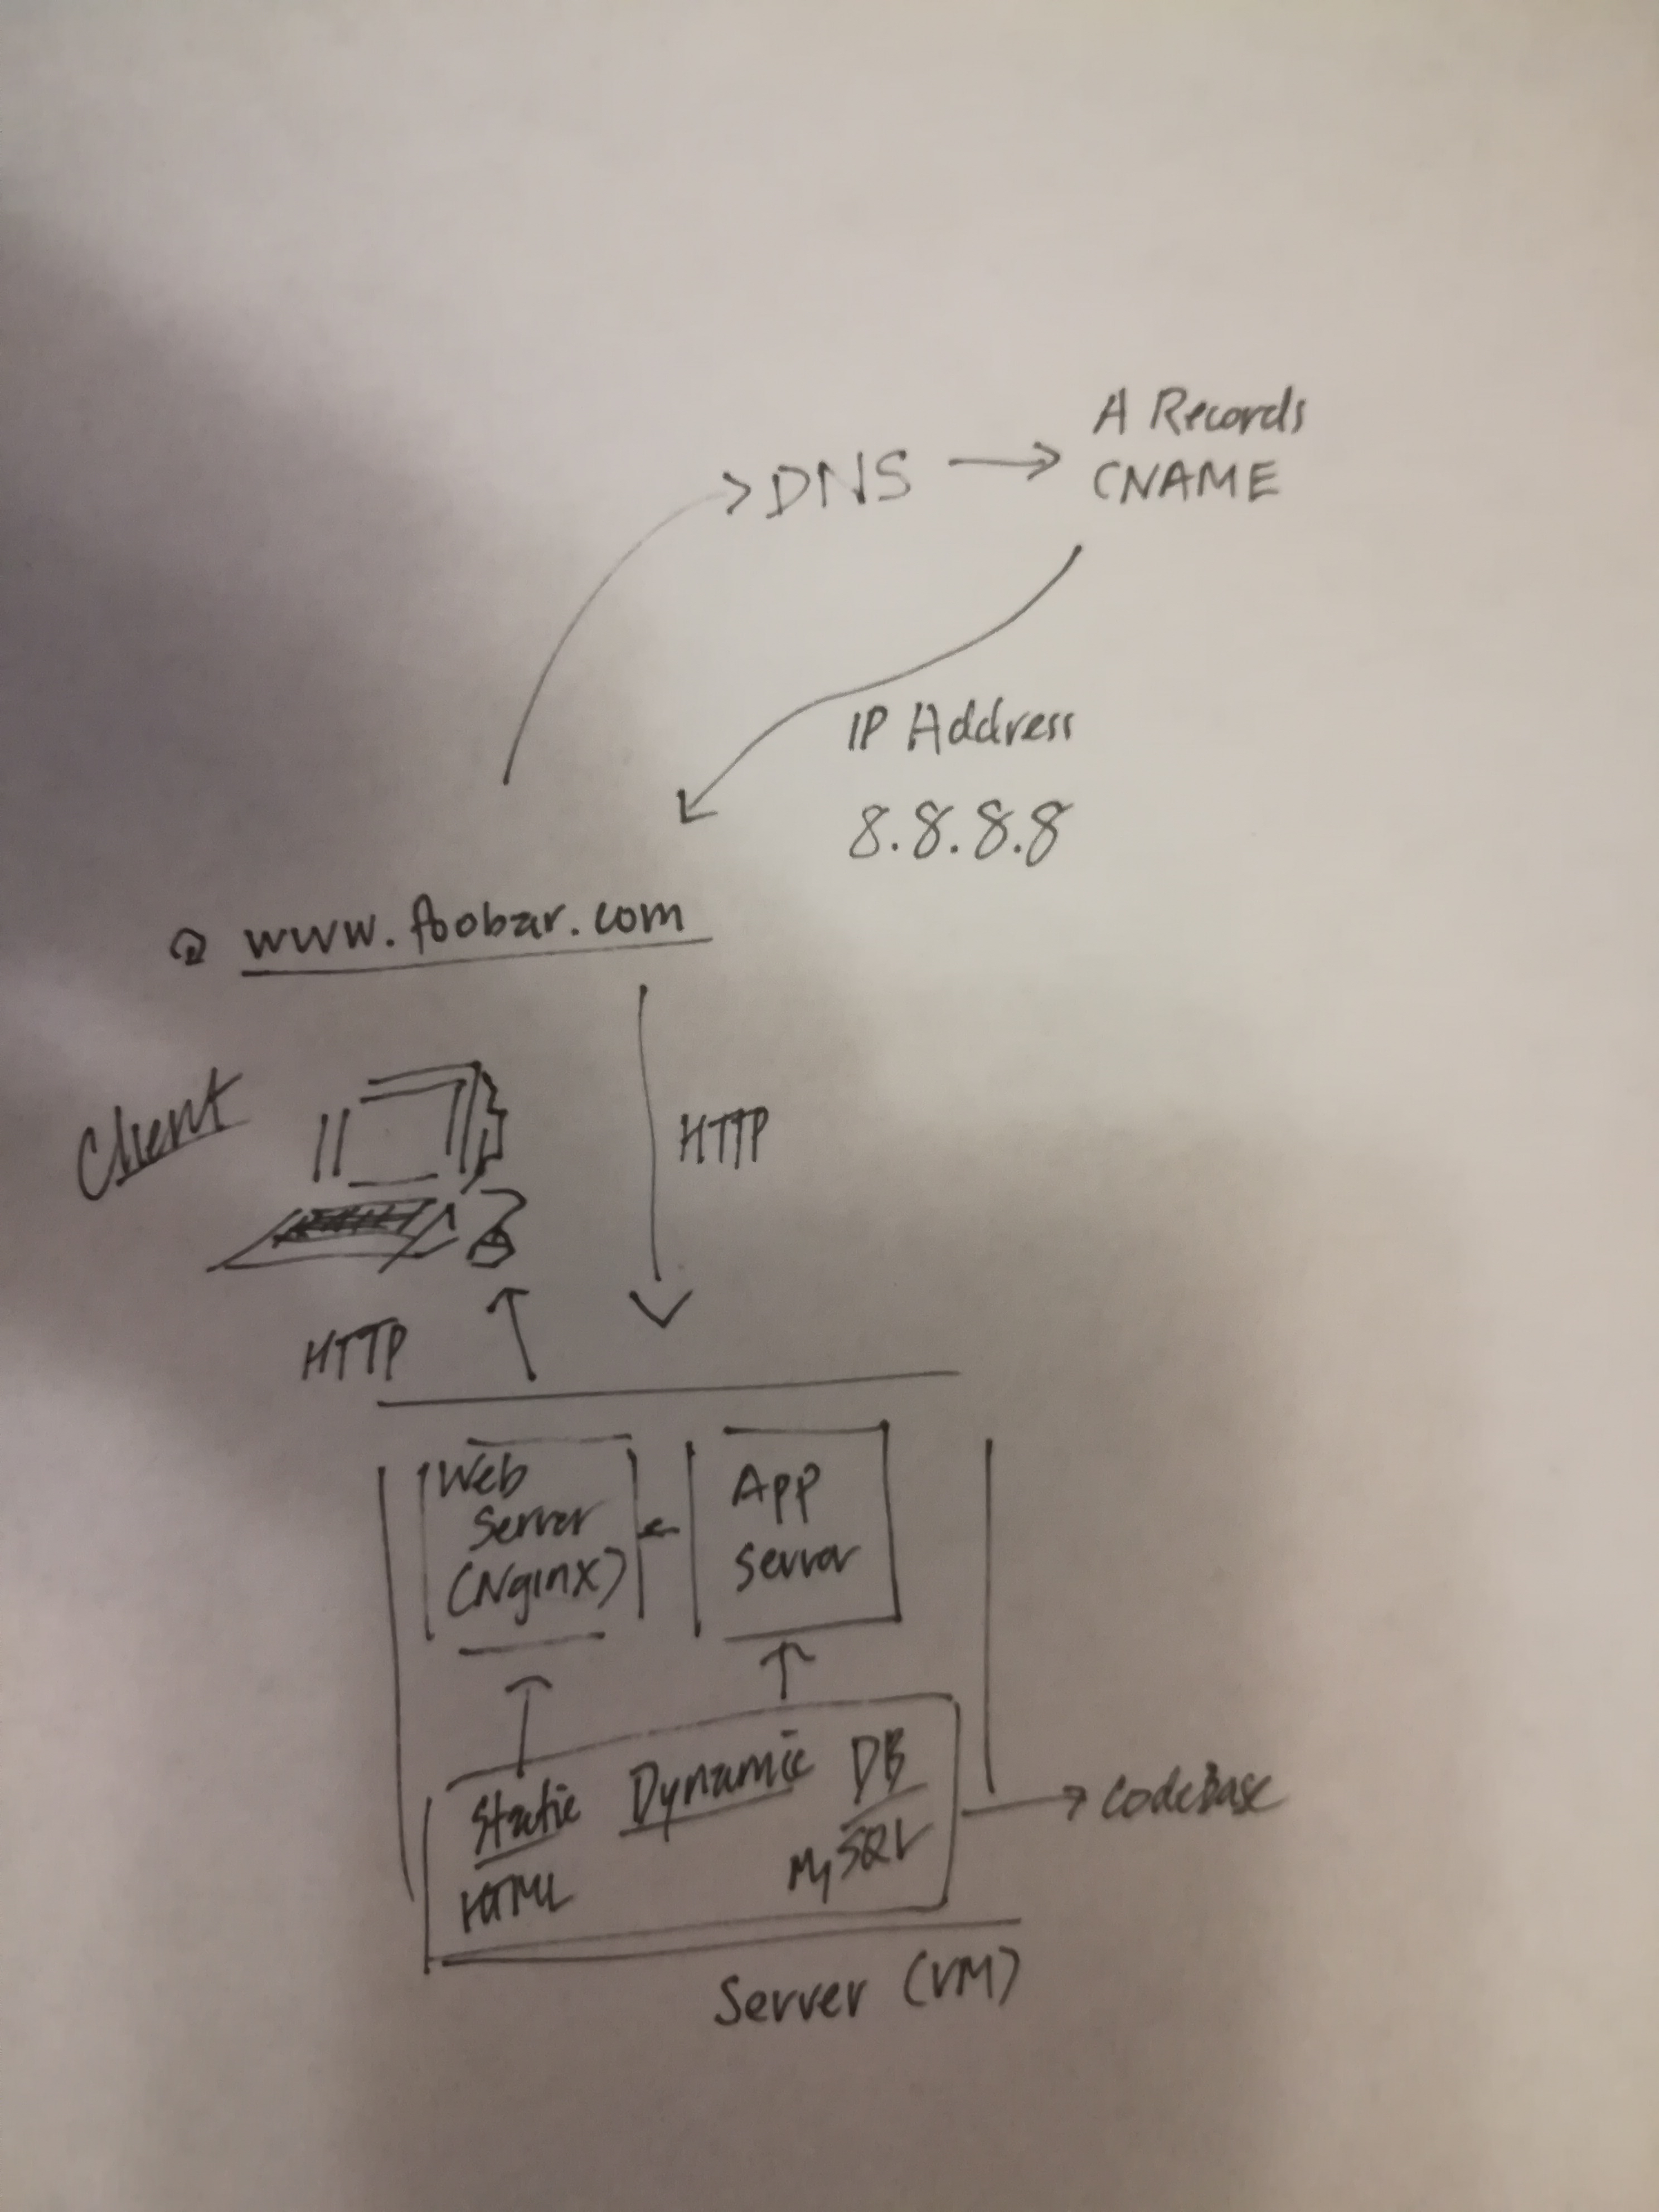 A Records
DNS
CNAME
IP Address
8.8.8.8
www.foobar.com
Client
HTTP
HTTP
Web
Server
(Nginx)
App
Server
Static
Dynamic
DB
HTML
MySQL
CodeBase
Server (VM)